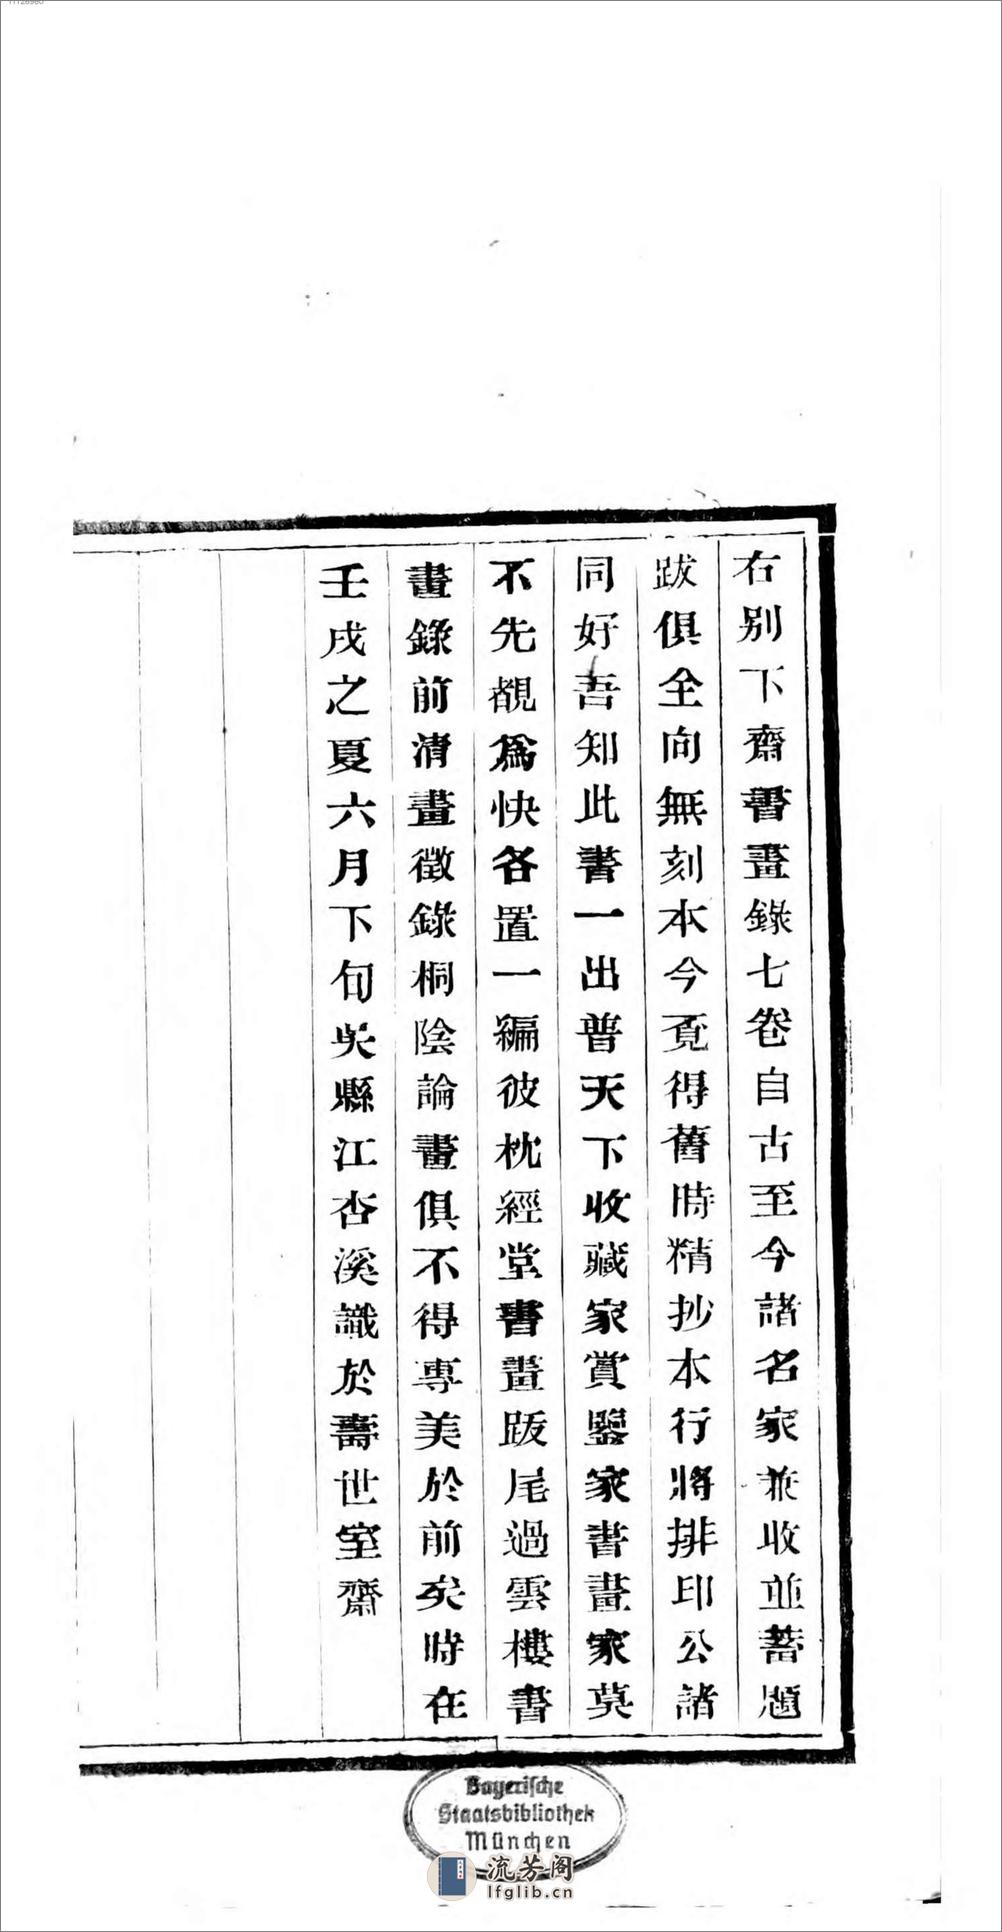 右別下齋書畫錄七卷自古至今諸名家兼收並蓄題
跋俱全向無刻本今覓得舊時精抄本行將排印公諸
同好吾知此書一出普天下收藏家賞鑒家書畫家莫
不先覩爲快各置一編彼枕經堂書畫跋尾過雲樓書
畫錄前清畫徵錄桐陰論畫俱不得專美於前矣時在
壬戌之夏六月下旬吳縣江杏溪識於壽世室齋
Bayerische
Staatsbibliothek
München
流芳阁
lfglib.cn